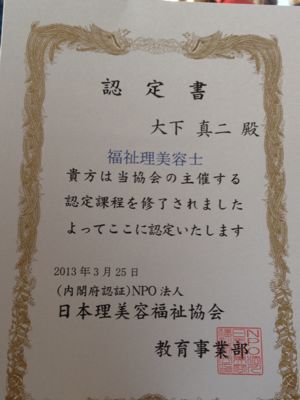 認定書
大下 真二 殿
福祉理美容士
貴方は当協会の主催する
認定課程を修了されました
よってここに認定いたします
2013年3月25日
(内閣府認証)NPO法人
日本理美容福祉協会
教育事業部